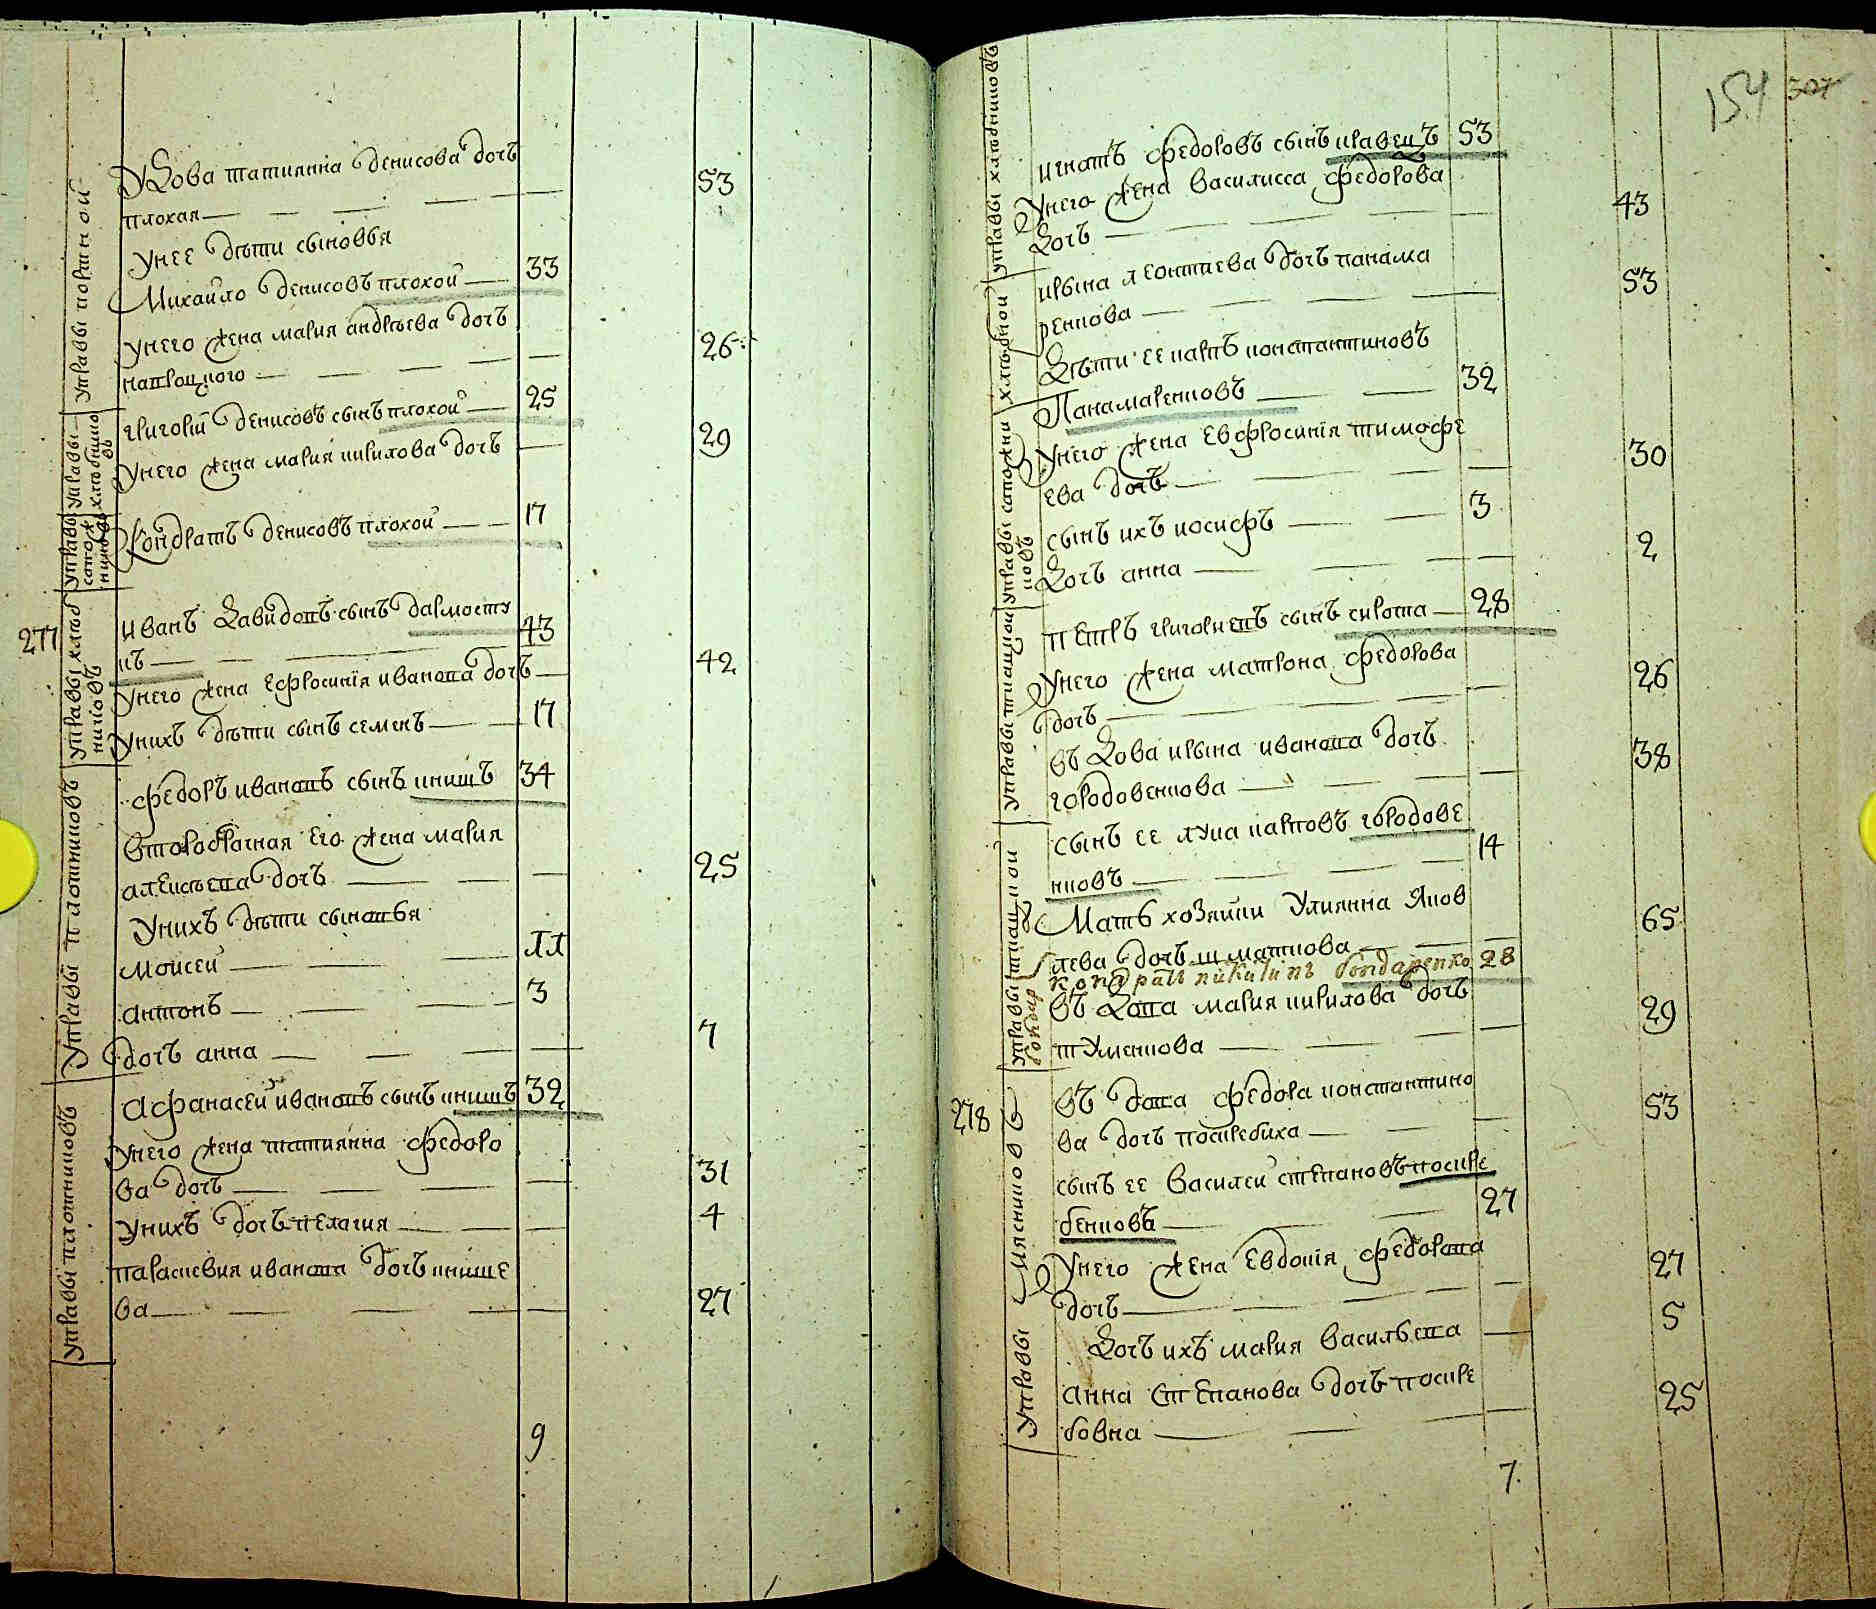 управы портной
вдова татиянна денисова дочь
плохая — 53
унее дѣти сыновья
Михайло денисовъ плохой — 33
унего жена мария андрѣева дочь
— 26
управы хлѣбнико
въ
григорий денисовъ сынъ плохой — 25
унего жена мария кирилова дочь — 29
управы
сапож
никовъ
Кондратъ денисовъ плохой — 17
277
управы хлѣб
никовъ
иванъ давидовъ сынъ далмосту
къ — 43
унего жена ефросиния иванова дочь — 42
унихъ дѣти сынъ семенъ — 17
управы плотниковъ
федоръ ивановъ сынъ книшъ 34
второбрачная его жена мария
алексѣева дочь — 25
унихъ дѣти сыновья
моисей — 11
антонъ — 3
дочь анна — 7
управы плотниковъ
афанасей ивановъ сынъ книшъ 32
унего жена татиянна федоро
ва дочь — 31
унихъ дочь пелагия — 4
параскевия иванова дочь книше
ва — 27
9
154 307
управы хлѣбниковъ
игнатъ федоровъ сынъ кравецъ 53
унего жена василисса федорова
дочь — 43
управы хлѣбной
ирына леонтиева дочь панама
ренкова — 53
управы сапожни
ковъ
дѣти ее карпъ константиновъ
Панамаренковъ — 32
унего жена евфросиния тимофе
ева дочь — 30
сынъ ихъ иосифъ — 3
дочь анна — 2
управы ткацкой
петръ григориевъ сынъ сирота — 28
унего жена матрона федорова
дочь — 26
вдова ирына иванова дочь
городовенкова — 38
управы ткацкой
сынъ ее лука карповъ городове
нковъ — 14
Мать хозяйки Улиянна Яков
лева дочь шматкова — 65
бондар
кондратъ никитинъ бондаренко 28
вдова мария кирилова дочь
туменкова — 29
278
управы мяснико въ
вдова федора константино
ва дочь поскребиха — 53
сынъ ее василей степановъ поскре
бенковъ — 27
унего жена евдокия федорова
дочь — 27
дочь ихъ мария васильева — 5
анна степанова дочь поскре
бовна — 25
7